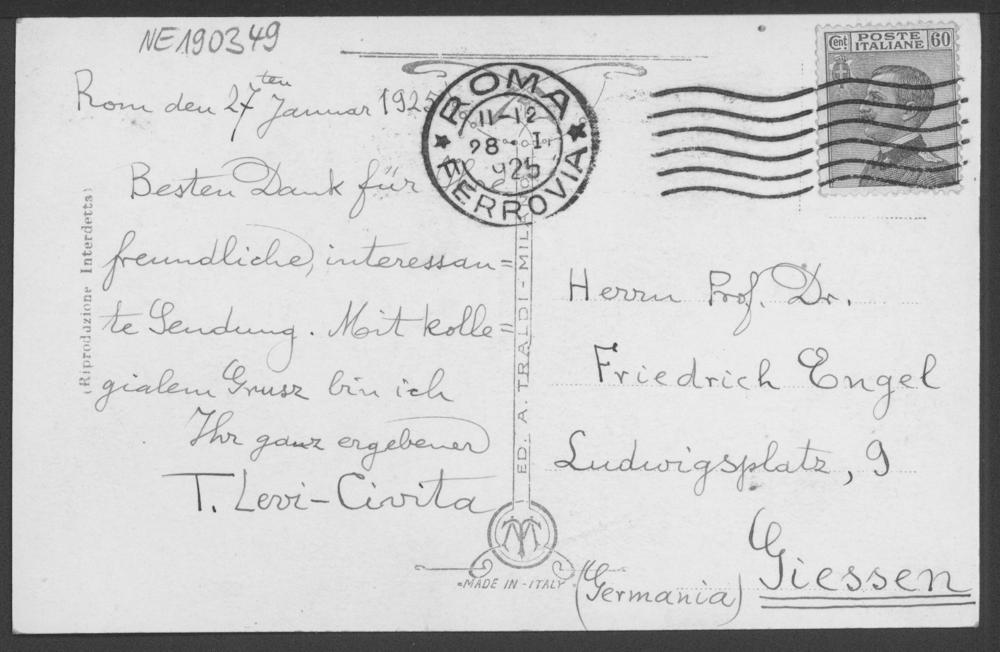 NE190349
Rom den 27ten Januar 1925
Besten Dank für
freundliche, interessan=
te Sendung. Mit kolle=
gialem Grusz bin ich
Ihr ganz ergebener
T. Levi-Civita
(Riproduzione Interdetta)
ROMA
11-12
28 - I
925
FERROVIA
Cent POSTE ITALIANE 60
ED. A. TRALDI - MILANO
MADE IN - ITALY
Herrn Prof. Dr.
Friedrich Engel
Ludwigsplatz, 9
Giessen
(Germania)